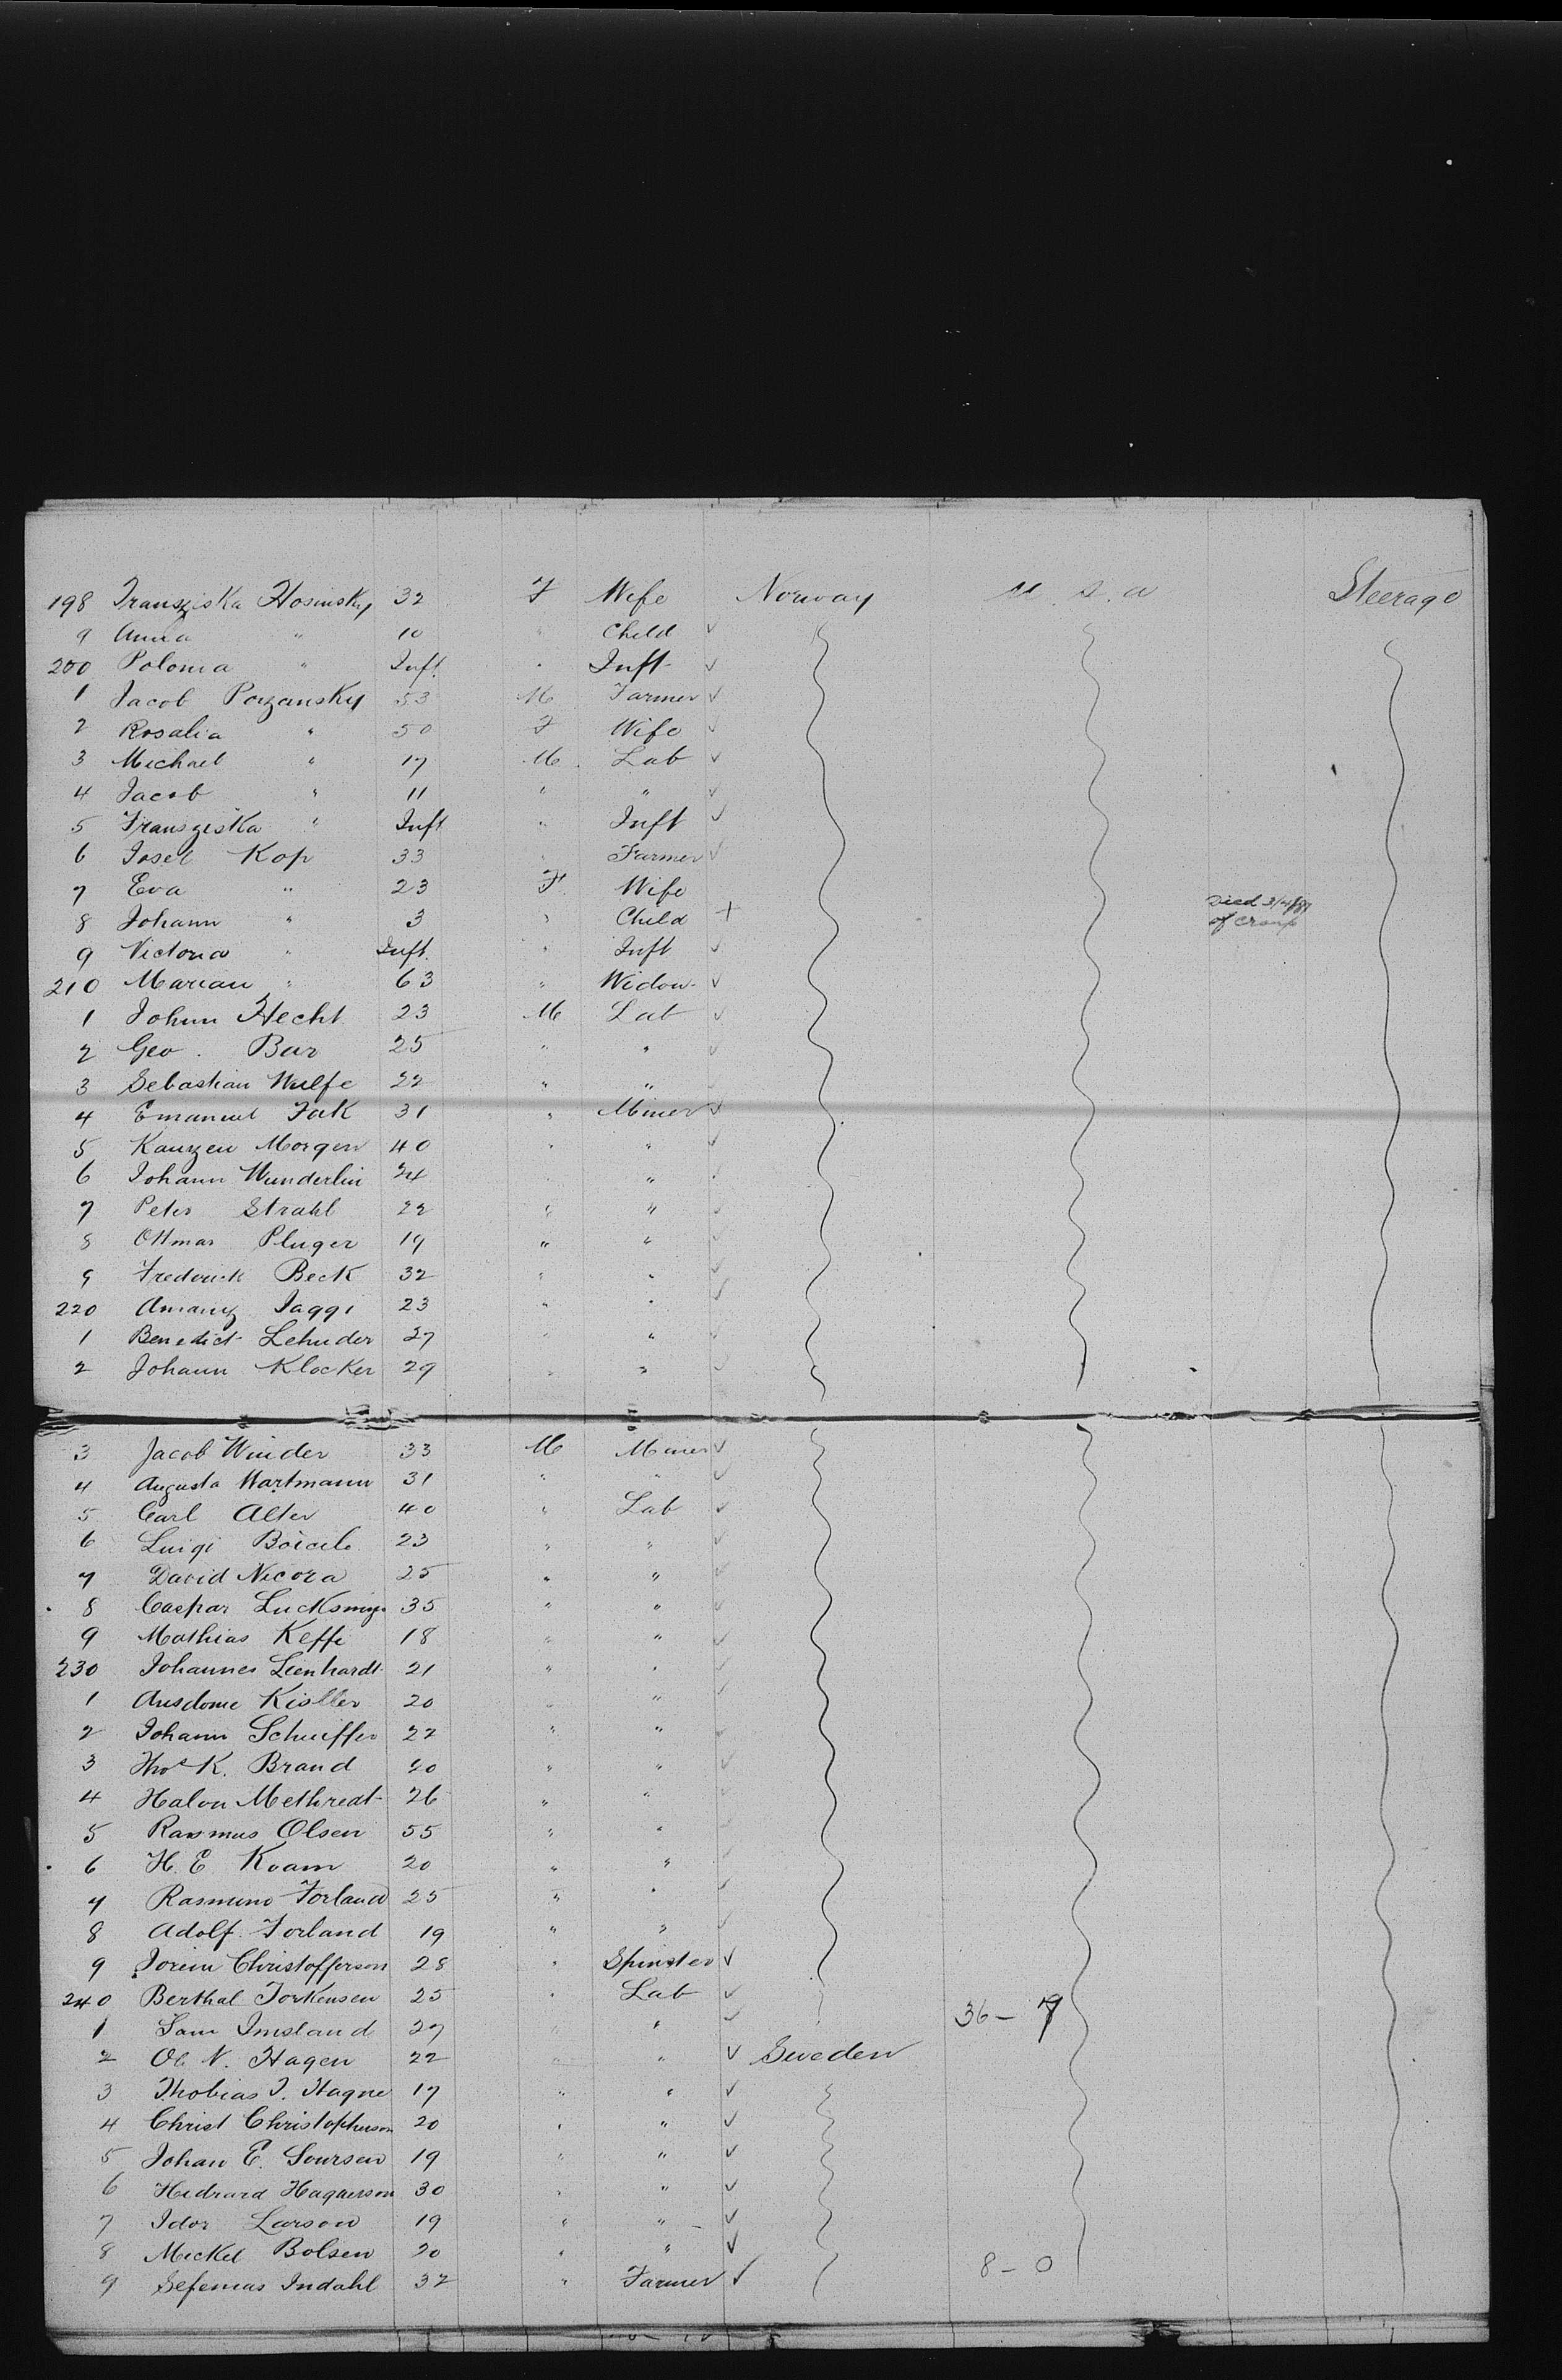 198 Fransziska Hosinsky 32 F Wife Norway U.S.A Steerage
9 Anna " 10 " Child ✓
200 Polonia " Inft. " Inft ✓
1 Jacob Porzansky 53 M Farmer ✓
2 Rosalia " 50 F Wife ✓
3 Michael " 17 M. Lab ✓
4 Jacob " 11 " " ✓
5 Fransziska " Inft " Inft ✓
6 Josef Kop 33 " Farmer ✓
7 Eva " 23 F Wife
8 Johann " 3 " Child + Died 3/4/89 of Croup
9 Victoria " Inft. " Inft ✓
210 Marian " 63 " Widow ✓
1 Johnn Hecht 23 M Lab ✓
2 Geo. Bar 25 " " ✓
3 Sebastian Wulfe 22 " " ✓
4 Emanuel Fak 31 " Miner ✓
5 Kauzen Morgen 40 " " ✓
6 Johann Wunderlin 24 " "
7 Peter Strahl 22 " " ✓
8 Ottmar Pluger 19 " " ✓
9 Frederick Beck 32 " " ✓
220 Jaggi 23 " " ✓
1 Benedict Lehnder 27 " " ✓
2 Johann Klocker 29 " " ✓
3 Jacob Winder 33 M Miner ✓
4 Augusta Wartmann 31 " " ✓
5 Carl Alter 40 " Lab ✓
6 Luigi 23 " " ✓
7 David Nicora 25 " " ✓
8 Caspar 35 " " ✓
9 Mathias Keffi 18 " " ✓
230 Johannes Leenhardt 21 " " ✓
1 Kistler 20 " " ✓
2 Johann Schuiffer 22 " " ✓
3 Thos K. Brand 20 " " ✓
4 Halvn Methredt 26 " " ✓
5 Rasmus Olsen 55 " " ✓
6 H. E. Kvam 20 " " ✓
7 Rasmund Forland 25 " " ✓
8 Adolf Forland 19 " " ✓
9 Jorein Christofferson 28 " Spinster ✓
240 Berthal Torkensen 25 " Lab ✓
1 Sam Imsland 27 " " ✓ 36 – 9
2 Ol N. Hagen 22 " " ✓ Sweden
3 Thobias T. Hagne 17 " " ✓
4 Christ Christopherson 20 " " ✓
5 Johan E. Soursen 19 " " ✓
6 Hedvard Hagnerson 30 " " ✓
7 Idor Larson 19 " " ✓
8 Mickel Bolsen 20 " " ✓
9 Sefenias Indahl 32 " Farmer ✓ 8 – 0